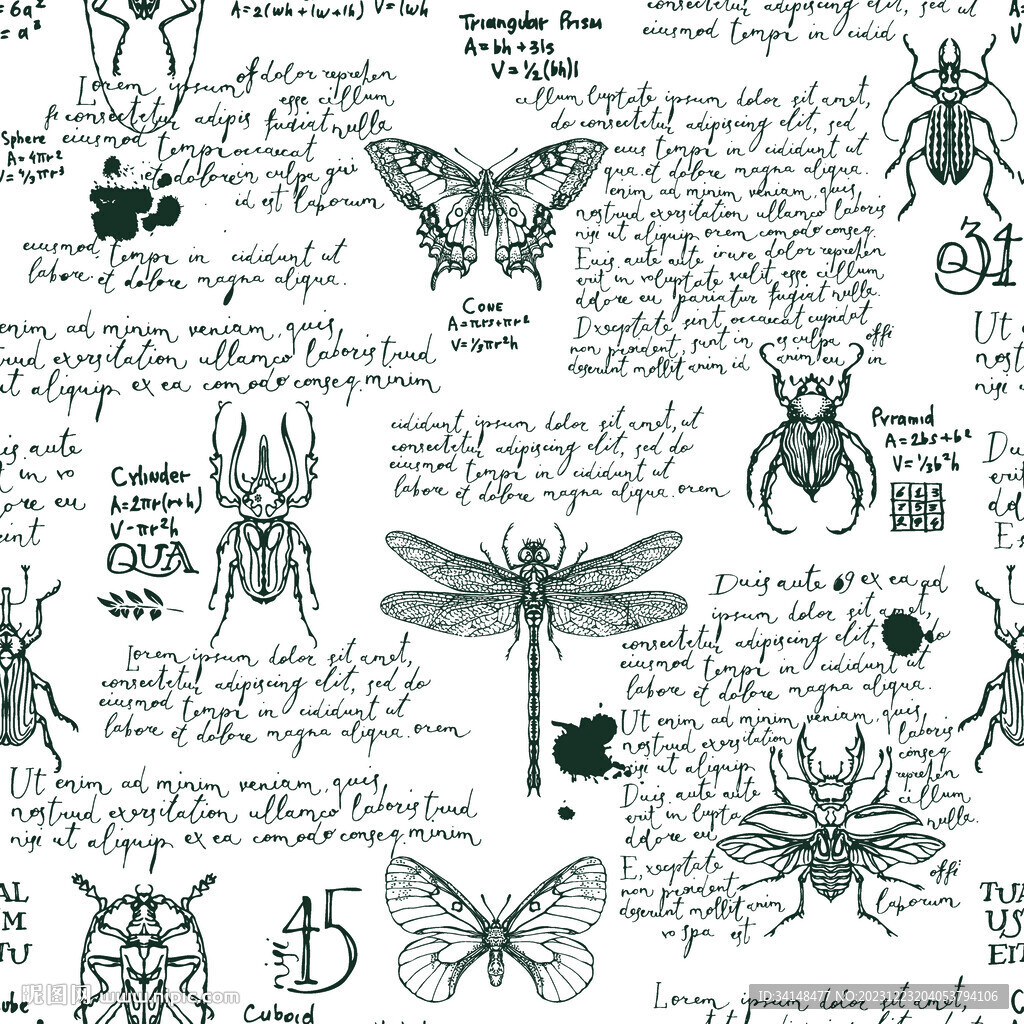 = 6a²
= a³
A=2(wh+lw+lh) V=lwh
Triangular Prism
A=bh+3ls
V=½(bh)l
consectetur adipiscing elit, sed ut
eiusmod tempi in cidid
Lorem ipsum of dolor reprehen
esse cillum
consectetur adipis fugiat nulla
eiusmod tempi occaecat
et dolorein culpa qui
id est laborum
Sphere
A=4πr²
V=4/3πr³
eiusmod tempi in cididunt ut
labore et dolore magna aliqua.
cillum luptate ipsum dolor sit amet,
do consectetur adipiscing elit, sed
eius tempi in cididunt ut
qua. et dolore magna aliqua.
enim ad minim veniam, quis
nostrud exersitation ullamco laboris
nisi ut aliquip orem comodo conseq.
Euis aute aute irure dolor reprehen
erit in voluptate velit esse cillum
dolore eu pariatur fugiat nulla.
Dxceptate sint occaecat cupidat
non proident, sunt in es culpa offi
deserunt mollit anim id anim eu in
34
Cone
A=πrs+πr²
V=⅓πr²h
enim ad minim veniam, quis
trud exersitation ullamco laboris trud
ut aliquip ex ea comodo conseq. minim
Ut
nost
nisi
is aute
t in vo
ore eu
eint
Cylinder
A=2πr(r+h)
V-πr²h
QUA
cididunt ipsum dolor sit amet, ut
consectetur adipiscing elit, sed do
eiusmod tempi in cididunt ut
labore et dolore magna aliqua. orem
Pyramid
A=2bs+b²
V=⅓b²h
Du
erit
dol
E
Duis aute 69 ex ea ad
ipsum dolor sit amet,
consectetur adipiscing elit, do
eiusmod tempi in cididunt ut
labore et dolore magna aliqua.
Lorem ipsum dolor sit amet,
consectetur adipiscing elit, sed do
eiusmod tempi in cididunt ut
labore et dolore magna aliqua. orem
Ut enim ad minim veniam, quis
nostrud exersitation laboris
nisi ut aliquip conseq
reprehen
Duis aute aute cillum
erit in lupta nulla.
dolore eu
E, xceptate
non proident offi
deserunt mollit anim laborum
vo spa est
Ut enim ad minim veniam, quis
nostrud exersitation ullamco laboris trud
nisi ut aliquip ex ea comodo conseq minim
AL
M
TU
45
TUA
US
EIT
ube
Cuboid
Lorem ipsum dolor sit amet,
昵图网 www.nipic.com
ID:34148477 NO:20231223204053794106